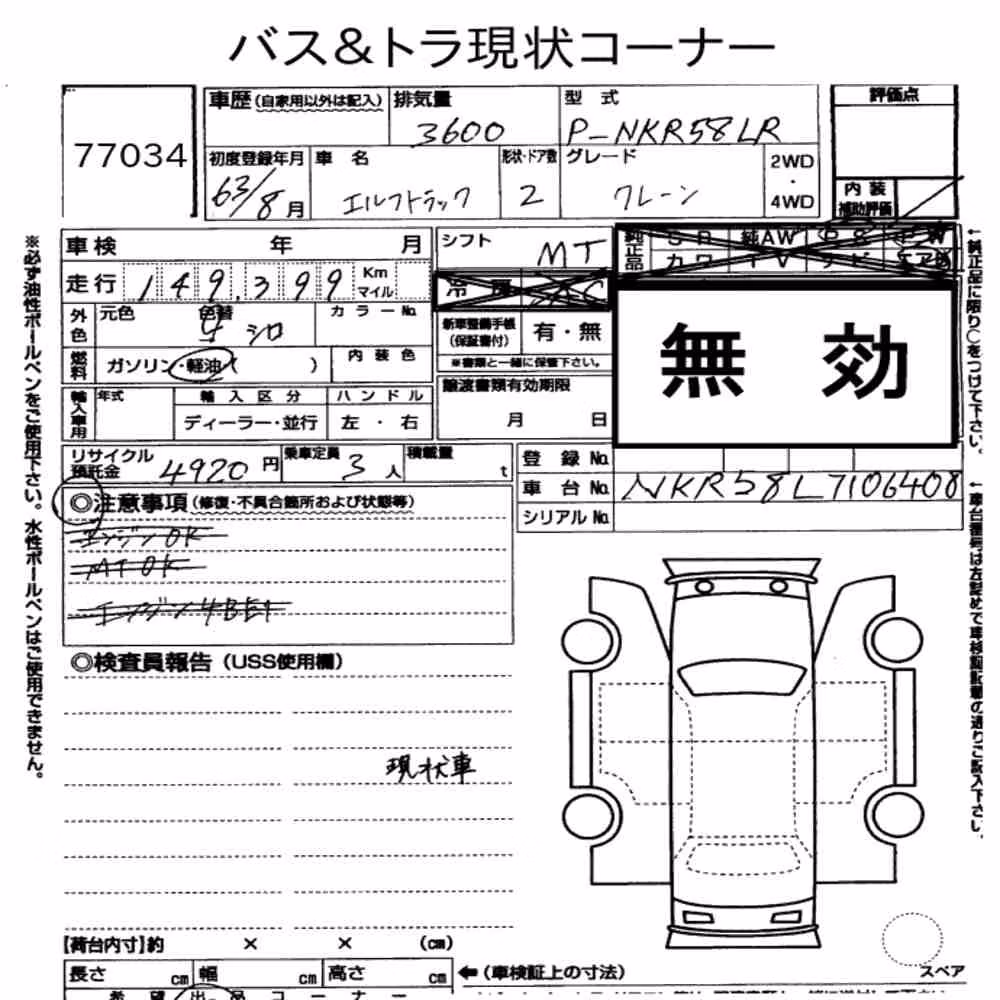 バス&トラ現状コーナー
77034
車歴(自家用以外は記入)
排気量
3600
型 式
P-NKR58LR
評価点
初度登録年月
63/8月
車 名
エルフトラック
形状・ドア数
2
グレード
クレーン
2WD
・
4WD
内 装
補助評価
車検 年 月
シフト
MT
純正品
SR
純AW
PS
PW
カワ
TV
ナビ
エアB
走行 149,399 Km
マイル
冷房
AC
外色
元色
色替
シロ
カラーNo.
新車整備手帳
(保証書付)
有・無
※書類と一緒に保管下さい。
無 効
燃料
ガソリン・軽油( )
内 装 色
輸入車用
年式
輸 入 区 分
ディーラー・並行
ハ ン ド ル
左 ・ 右
譲渡書類有効期限
月 日
リサイクル
預託金
4920円
乗車定員
3人
積載量
t
登 録 No.
車 台 No.
NKR58L7106408
シリアルNo.
◎注意事項(修復・不具合箇所および状態等)
エンジンOK
MTOK
エンジン4BE1
◎検査員報告(USS使用欄)
現状車
【荷台内寸】約 × × (cm)
長さ cm
幅 cm
高さ cm
←(車検証上の寸法)
スペア
希 望 出 品 コ ー ナ ー
※必ず油性ボールペンをご使用下さい。水性ボールペンはご使用できません。
←純正品に限り○をつけて下さい。
←車台番号は左詰めで車検証記載の通りご記入下さい。